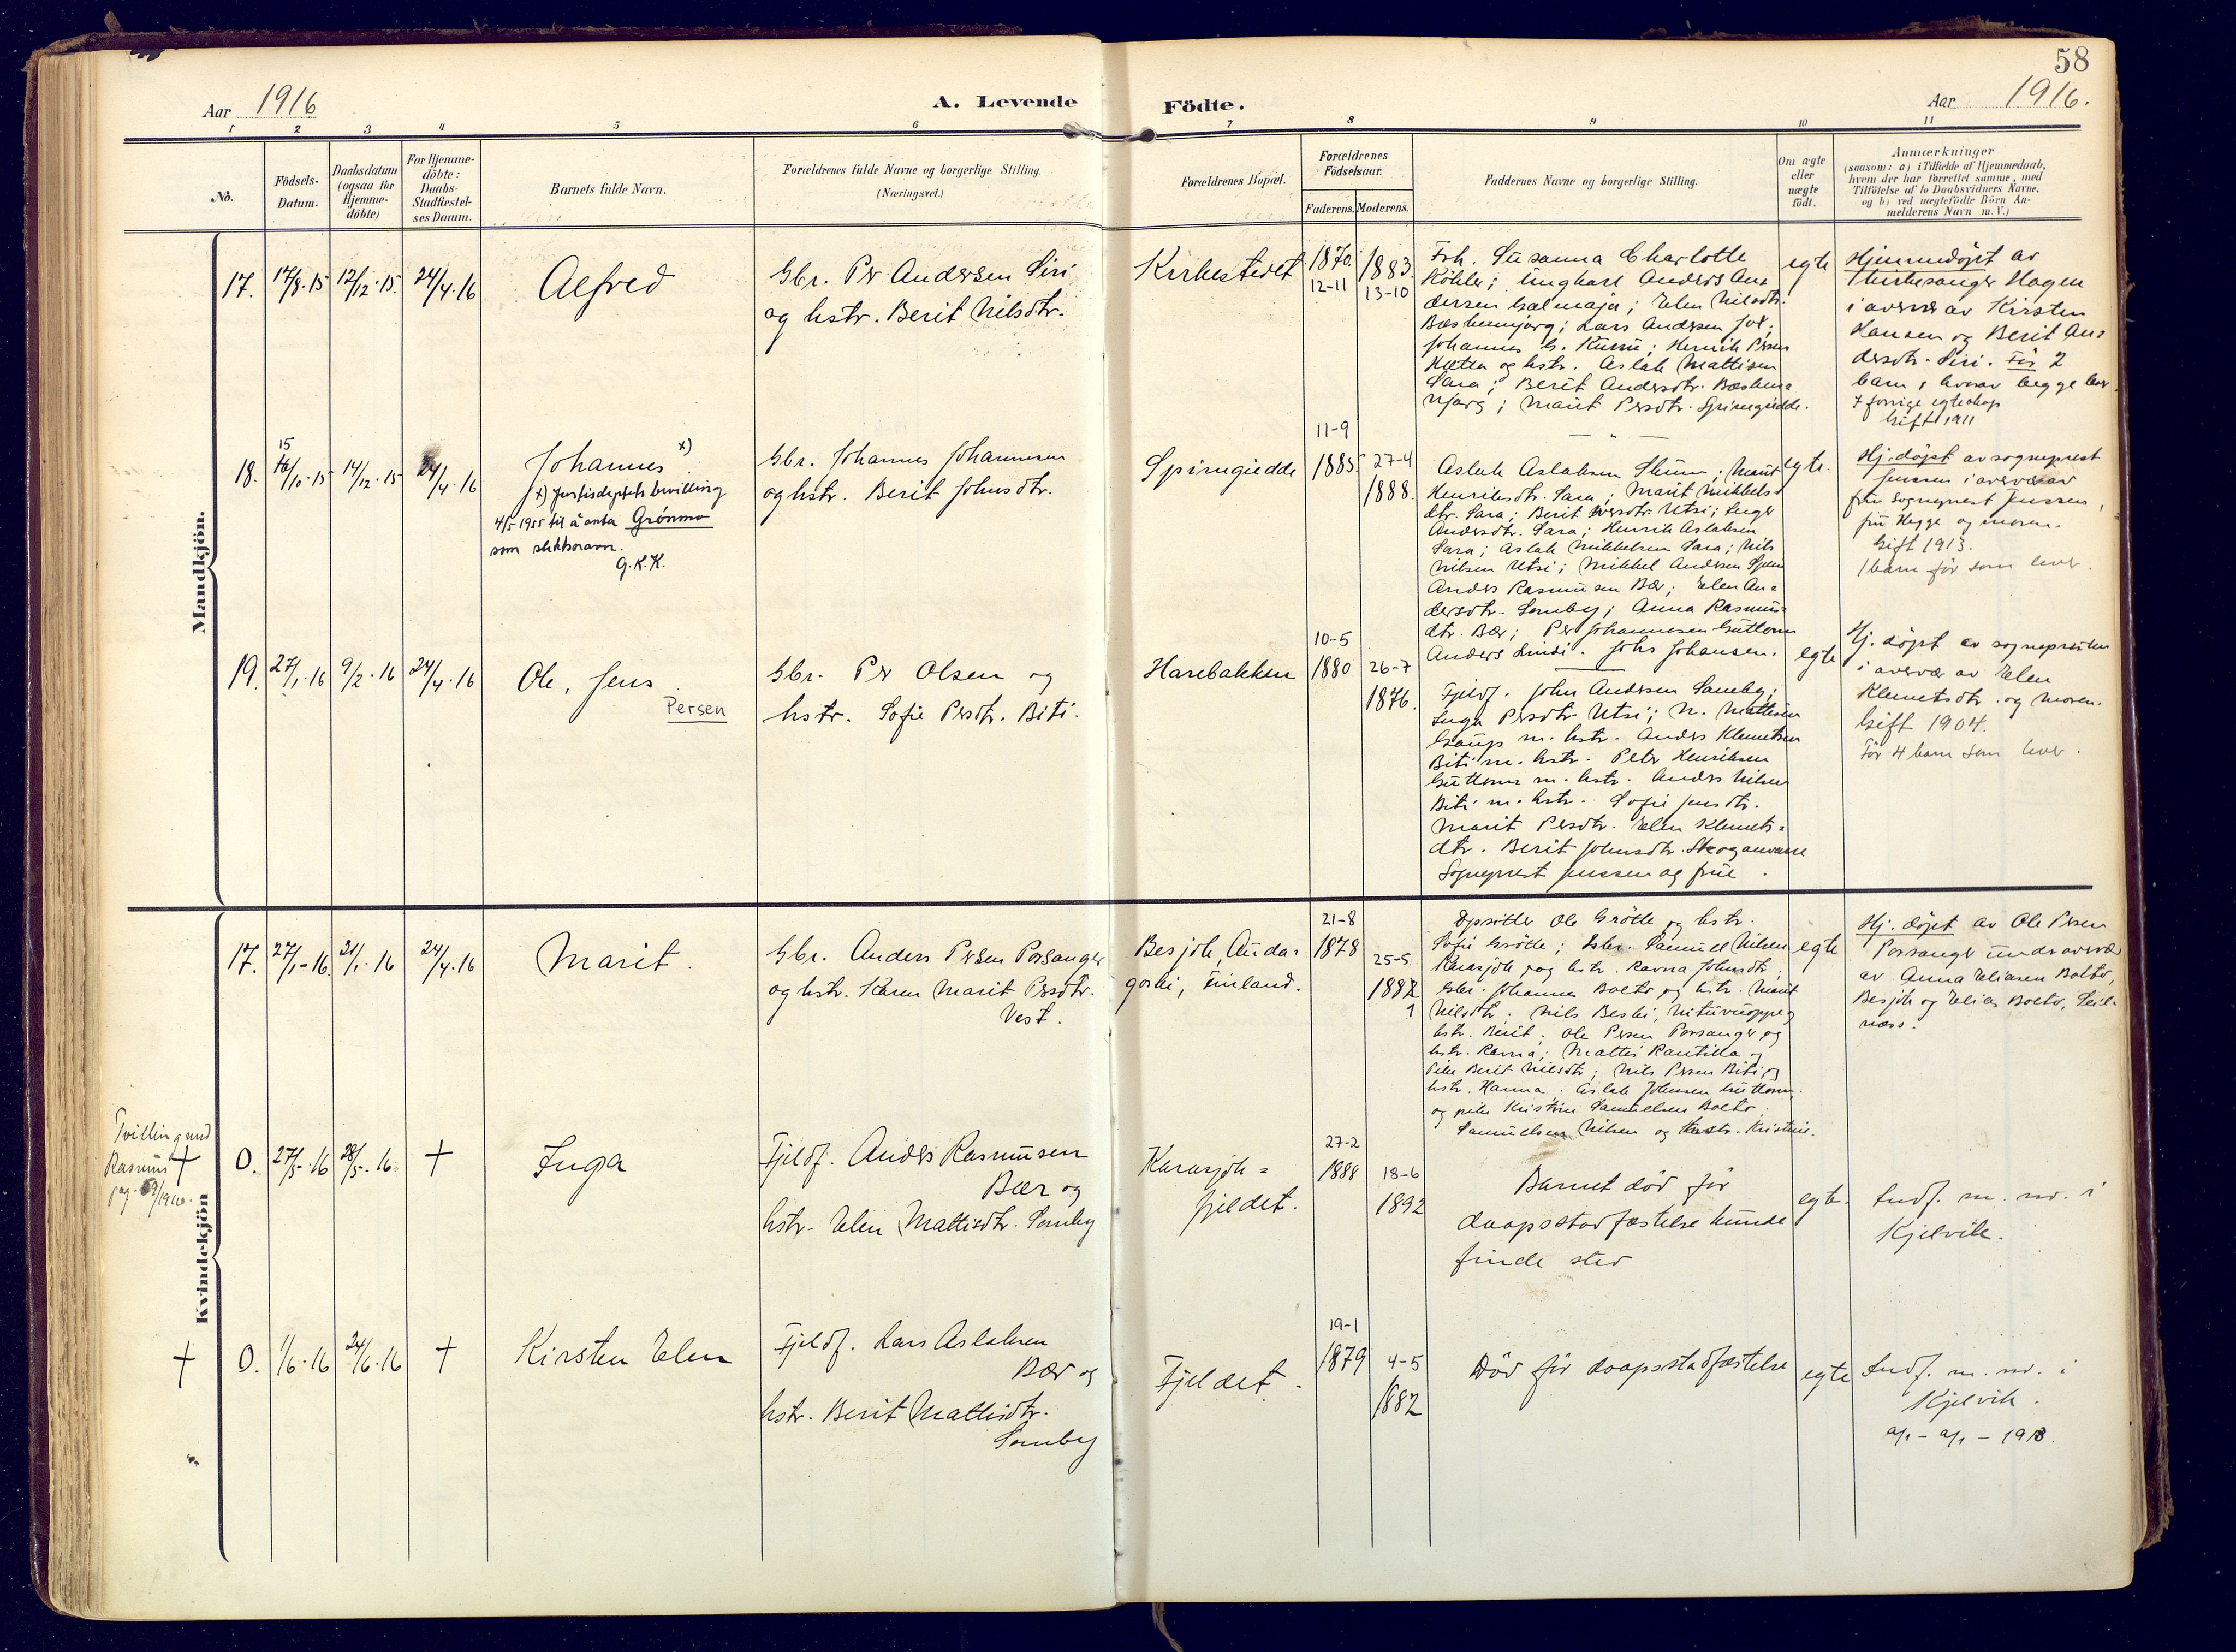 58
Aar 1916
A. Levende
Födte.
Aar 1916.
1 2 3 4 5 6 7 8 9 10 11
No.
Födsels-
Datum.
Daabsdatum
(ogsaa for
Hjemme-
döbte)
For Hjemme-
döbte:
Daabs-
Stadfæstel-
ses Datum.
Barnets fulde Navn.
Forældrenes fulde Navne og borgerlige Stilling.
(Næringsvei.)
Forældrenes Bopæl.
Forældrenes
Födselsaar.
Faderens. Moderens.
Faddernes Navne og borgerlige Stilling.
Om ægte
eller
uægte
födt.
Anmærkninger
(saasom: a) i Tilfælde af Hjemmedaab,
hvem der har forrettet samme, med
Tilföielse af to Daabsvidners Navne,
og b) ved uægtefödte Börn An-
melderens Navn m. V.)
Mandkjön.
17. 17/8.15 12/12.15. 24/4.16
Alfred
Gbr. Per Andersen Siri
og hstr. Berit Nilsdtr.
Kirkestedet
1870.
12-11
1883.
13-10
Frk. Susanna Charlotte
Köhler; Ungkarl Anders An=
dersen Galmaja; Elen Nilsdtr.
Lars Andersen
Johannes G. Henrik Persen
Hætta og hstr. Aslak Mattisen
Sara; Berit Andersdtr.
njarg; Marit Persdtr. Spirnegiedde.
egte
Hjemmedøpt av
Kirkesanger Hagen
i avervær av Kirsten
Hansen og Berit An=
dersdtr. Siri. Før 2
barn, hvorav begge lever.
forrige egteskap
Gift 1911
18. 15 16/10.15 14/12.15 24/4.16
Johannes x)
x) Justisdeptets bevilling
4/5-1955 til å anta Grönmo
som slektsnavn.
G.K.K.
Gbr. Johannes Johannesen
og hstr. Berit Johnsdtr.
Spirnegiedde
11-9
1885.
27-4
1888.
Aslak Aslaksen Skum; Marit
Henriksdtr. Sara; Marit Mikkels=
dtr. Sara; Berit Utsi; Inger
Andersdtr. Sara; Henrik Aslaksen
Sara; Aslak Mikkelsen Sara; Nils
Nilsen Utsi; Mikkel Andersen
Anders Rasmussen Bær; Elen An=
dersdtr. Somby; Anna Rasmus=
dtr. Bær; Per Johannesen Guttorm
Anders Johs Johansen.
egte.
Hj. døpt av sogneprest
Jenssen i avervær av
fru sogneprest Jenssen,
fru Hegge og moren.
Gift 1913.
1 barn før som lever.
19. 27/1.16 9/2.16 24/4.16
Ole, Jens
Persen
Gbr. Per Olsen og
hstr. Sofie Persdtr. Biti.
Harebakken
10-5
1880
26-7
1876.
Fjeldf. John Andersen Somby;
Inga Persdtr. Utsi; N. Mattisen
Gaup m. hstr. Anders Klemetsen
Biti m. hstr. Peter Henriksen
Guttorm m. hstr. Anders Nilsen
Biti m. hstr. Sofie Jensdtr.
Marit Persdtr. Elen Klemets=
dtr. Berit Johnsdtr. Skoganvarre
Sogneprest Jenssen og frue.
egte
Hj. døpt av sognepresten
i avervær av Elen
Klemetsdtr. og moren.
Gift 1904.
Før 4 barn som lever.
Kvindekjön
17. 27/1-16 21/1.16 24/4.16
Marit.
Gbr. Anders Persen Porsanger
og hstr. Karen Marit Persdtr.
Vest.
Besjok, Audas
goski, Finland.
21-8
1878
25-5
1882
1
Opsitter Ole Grøtte og hstr.
Sofie Grøtte; Gbr. Samuel Nilsen
Karasjok og hstr. Ravna Johnsdtr.
Gbr. Johannes Balto og hstr. Marit
Nilsdtr; Nils Beski, og
hstr. Berit; Ole Persen Porsanger og
hstr. Ravna; Mattis Rautilla og
Pike Berit Nilsdtr; Nils Persen Biti og
hstr. Hanna; Aslak Johnsen Guttorm
og pike Kristine Samuelsen Balto;
Samuelsen Nilsen og hstr. Kristine.
egte
Hj. døpt av Ole Persen
Porsanger under avervær
av Anna Eliasen Balto,
Besjok og Elias Balto, Seil=
næss.
Tvilling med
Rasmus
pag. 59/1916.
†
0. 27/5.16 28/5.16 †
Inga
Fjeldf. Anders Rasmussen
Bær og
hstr. Elen Mattisdtr. Somby
Karasjok=
fjeldet.
27-2
1888
18-6
1892
Barnet död før
daapsstadfæstelse kunde
finde sted
egte.
Indf. m. nr. i
Kjelvik.
†
0. 1/6.16 24/6.16 †
Kirsten Elen
Fjeldf. Lars Aslaksen
Bær og
hstr. Berit Mattisdtr.
Somby
Fjeldet.
19-1
1879
4-5
1882
Död før daapsstadfæstelse
egte
Indf. m. nr. i
Kjelvik.